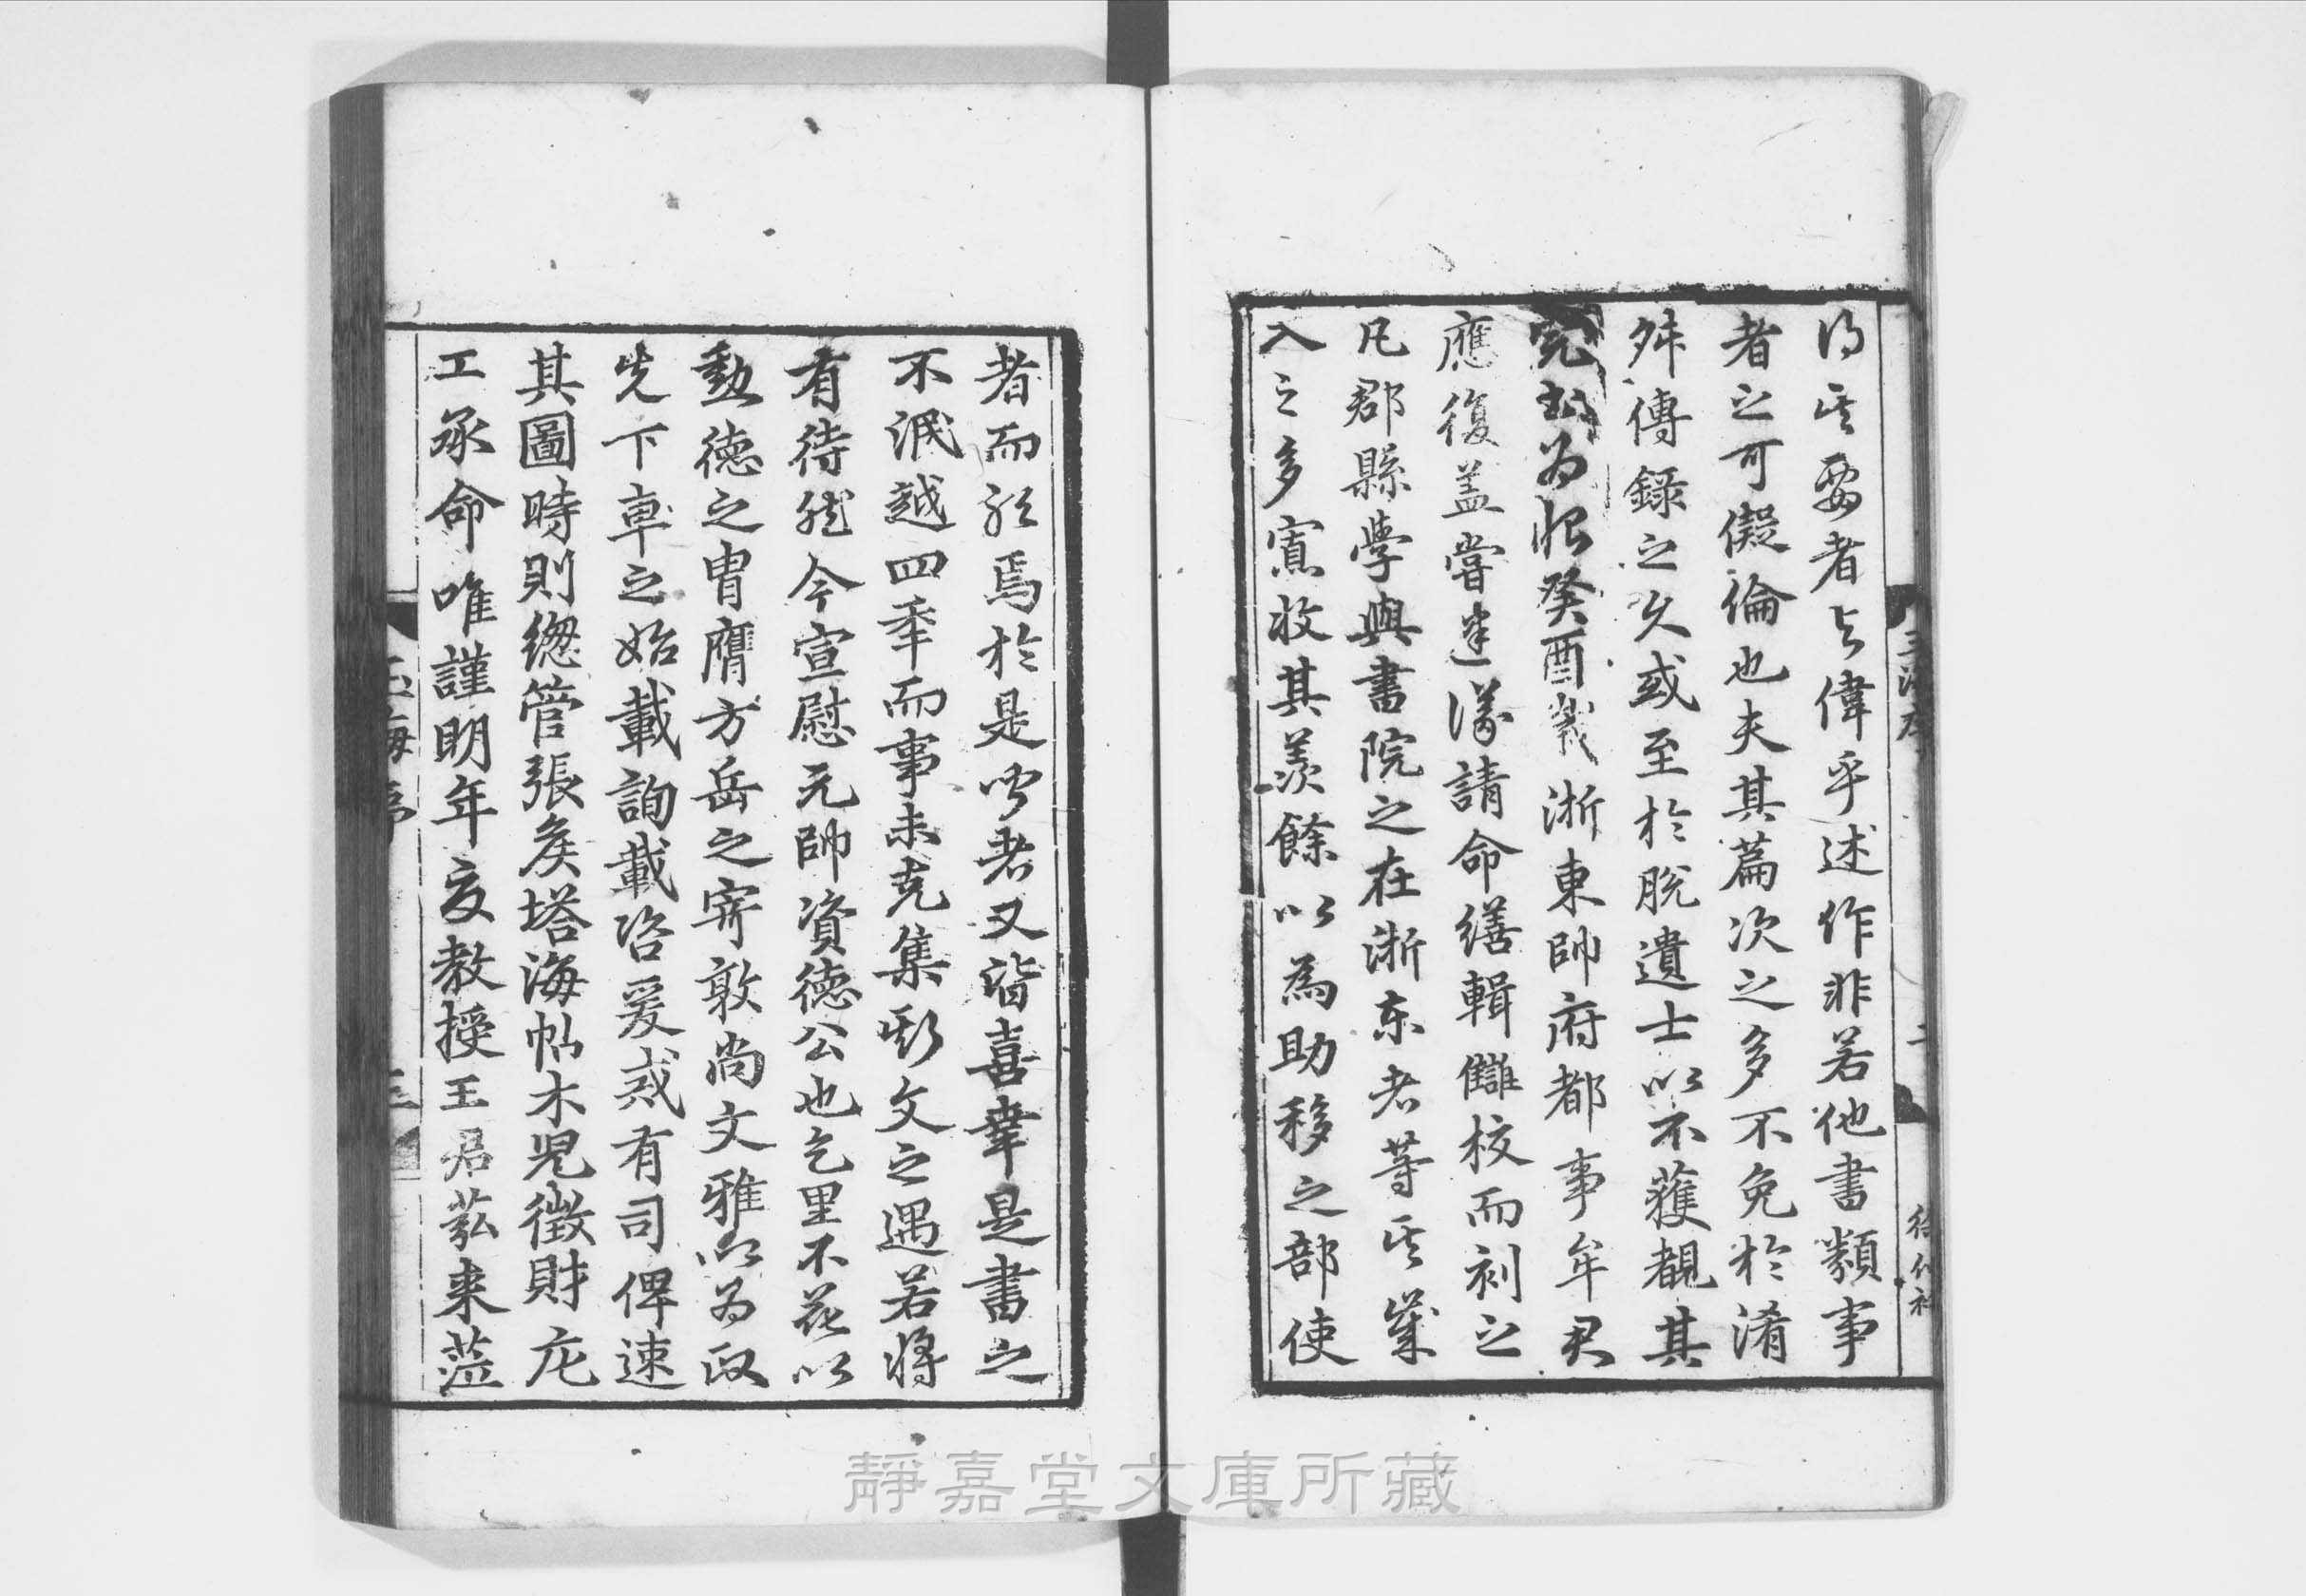 得其要者之偉乎述作非若他書類事
者之可儗倫也夫其篇次之多不免於淆
舛傳錄之久或至於脫遺士以不獲覩其
完書為恨癸酉歲浙東帥府都事牟君
應復盖嘗建議請命繕輯讎校而刻之
凡郡縣學與書院之在浙東者等其歲
入之多寡收其羨餘以為助移之部使
者而韙焉於是聞者又皆喜幸是書之
不泯越四年而事未克集斯文之遇若將
有待然今宣慰元帥資德公也乞里不花以
勳德之胄膺方岳之寄敦尚文雅以為政
先下車之始載詢載咨爰戒有司俾速
其圖時則緫管張矦塔海帖木児徵財庀
工承命唯謹明年夏教授王君荔来蒞
玉海序
二
玉海序
三
靜嘉堂文庫所藏